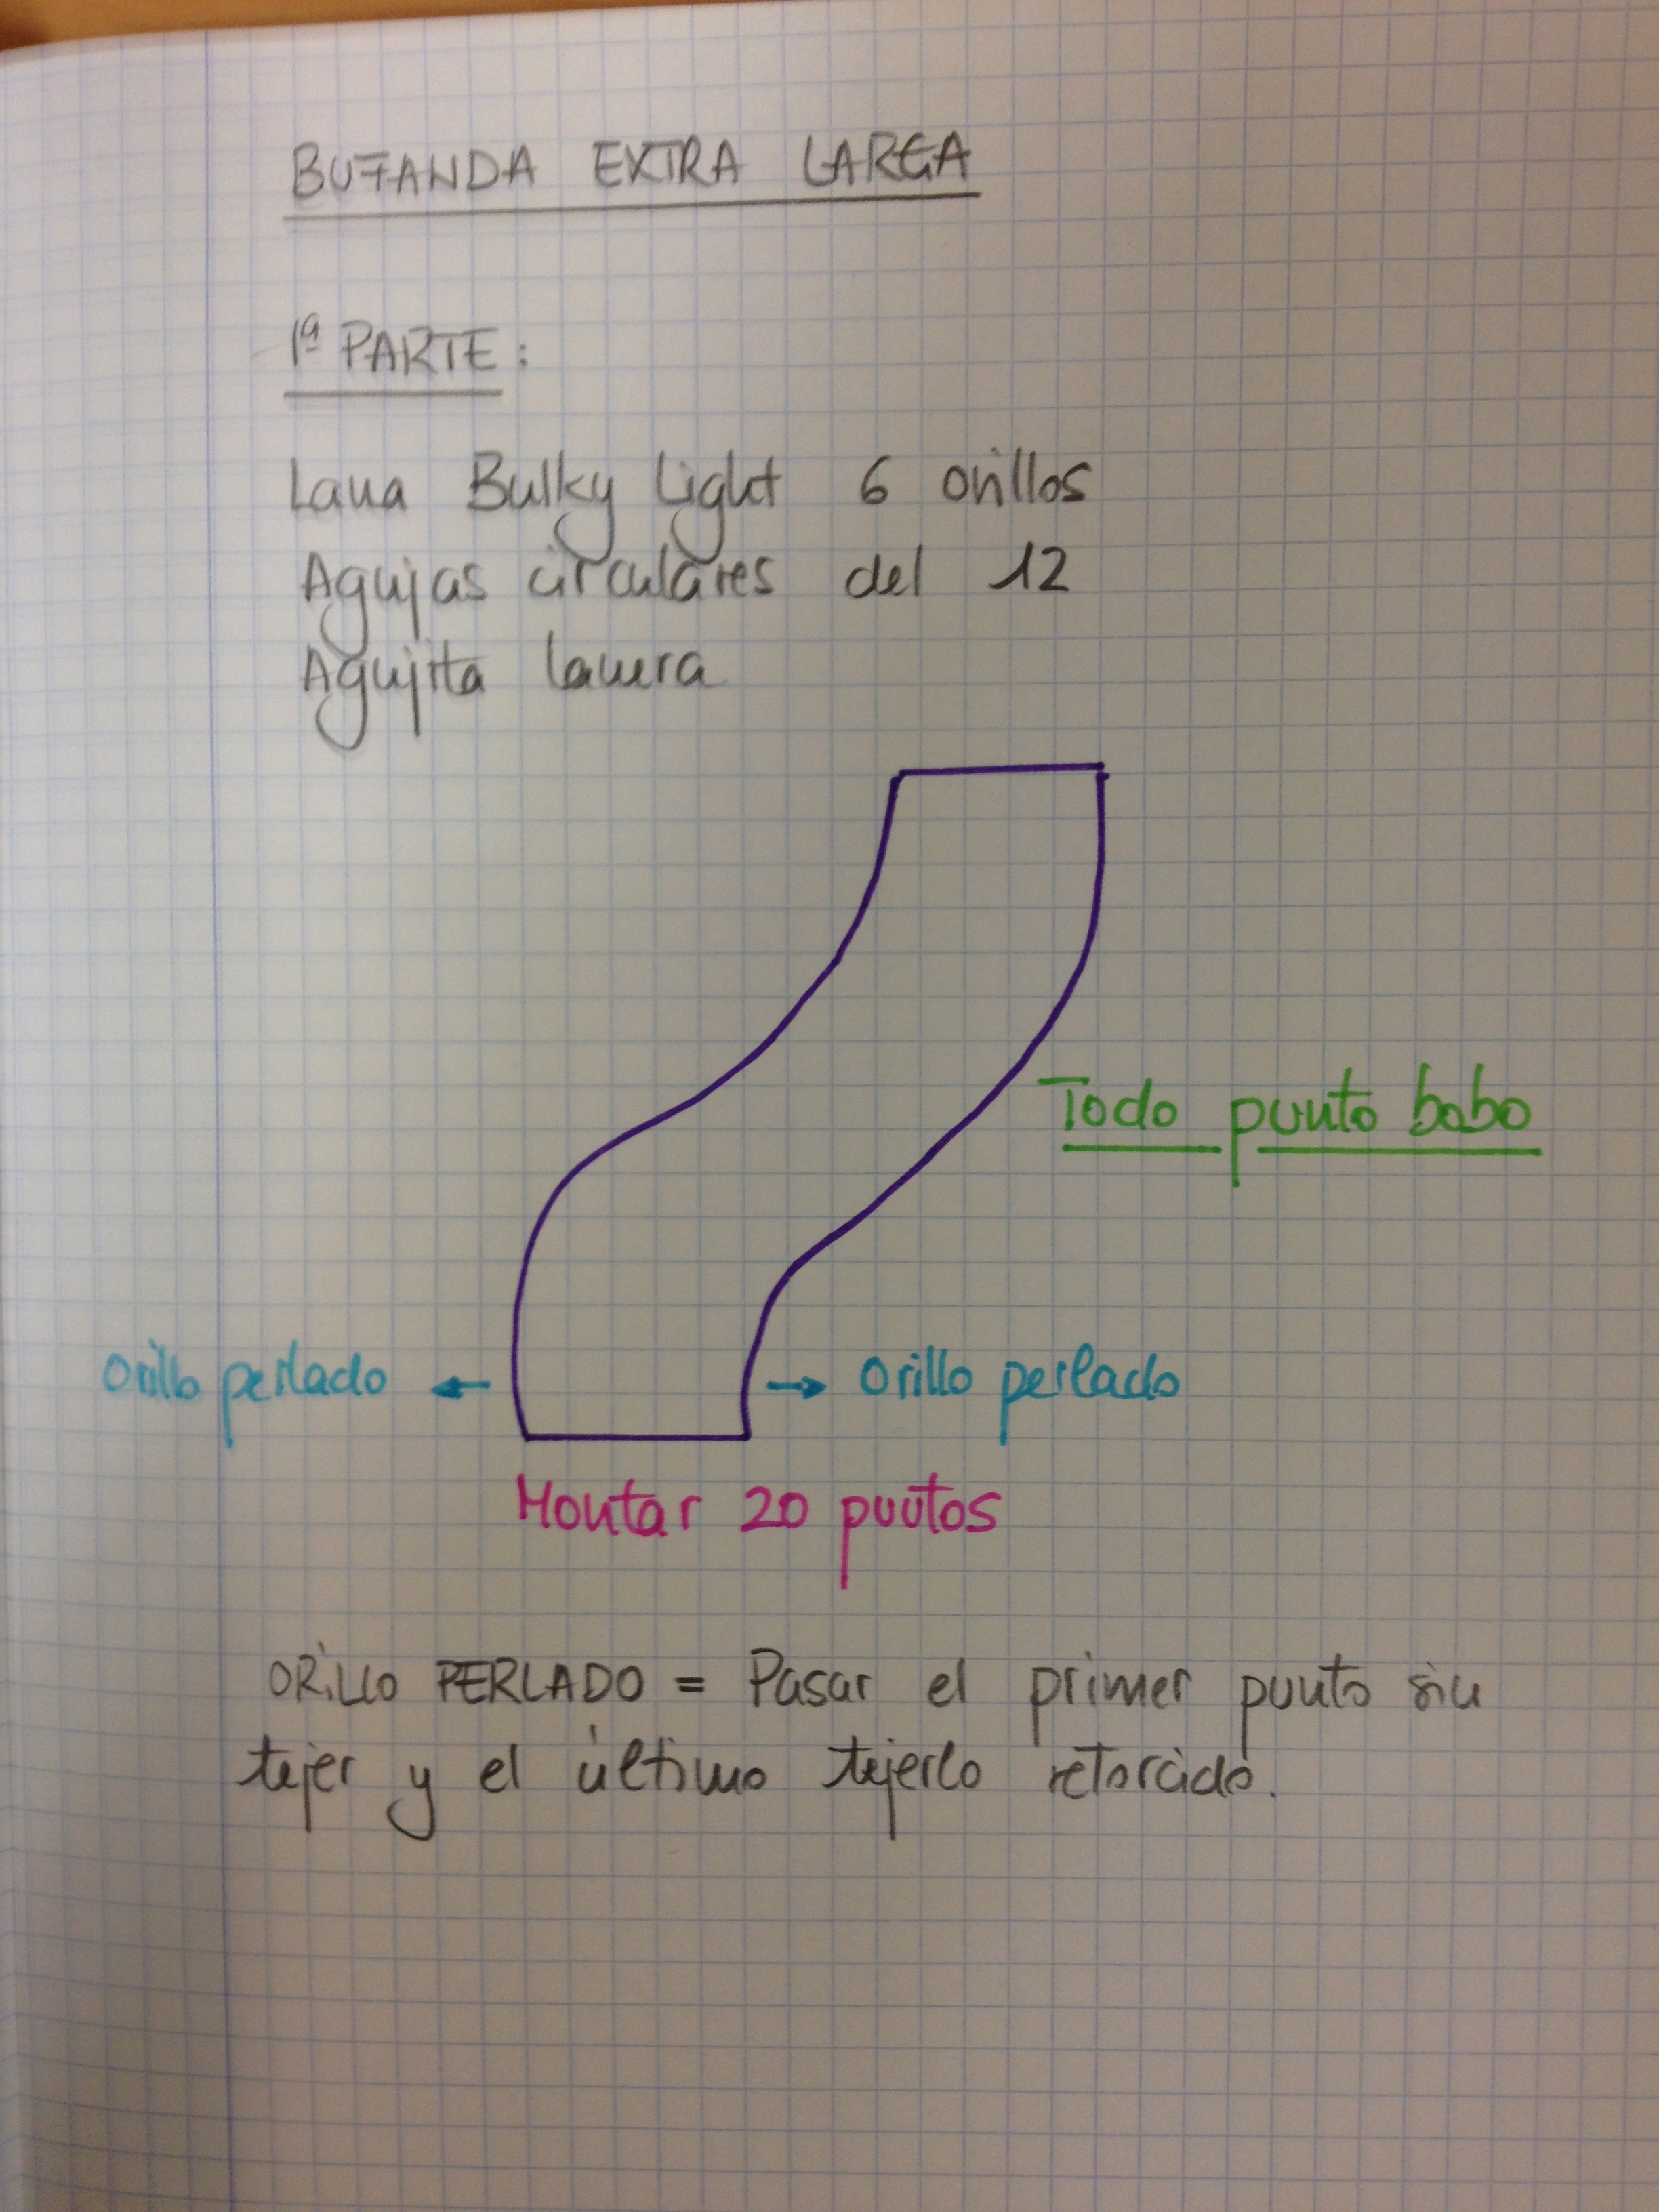 BUFANDA EXTRA LARGA
1ª PARTE:
Lana Bulky Light 6 ovillos
Agujas circulares del 12
Agujita lanera
Todo punto bobo
Orillo perlado ← → Orillo perlado
Montar 20 puntos
ORILLO PERLADO = Pasar el primer punto sin
tejer y el último tejerlo retorcido.